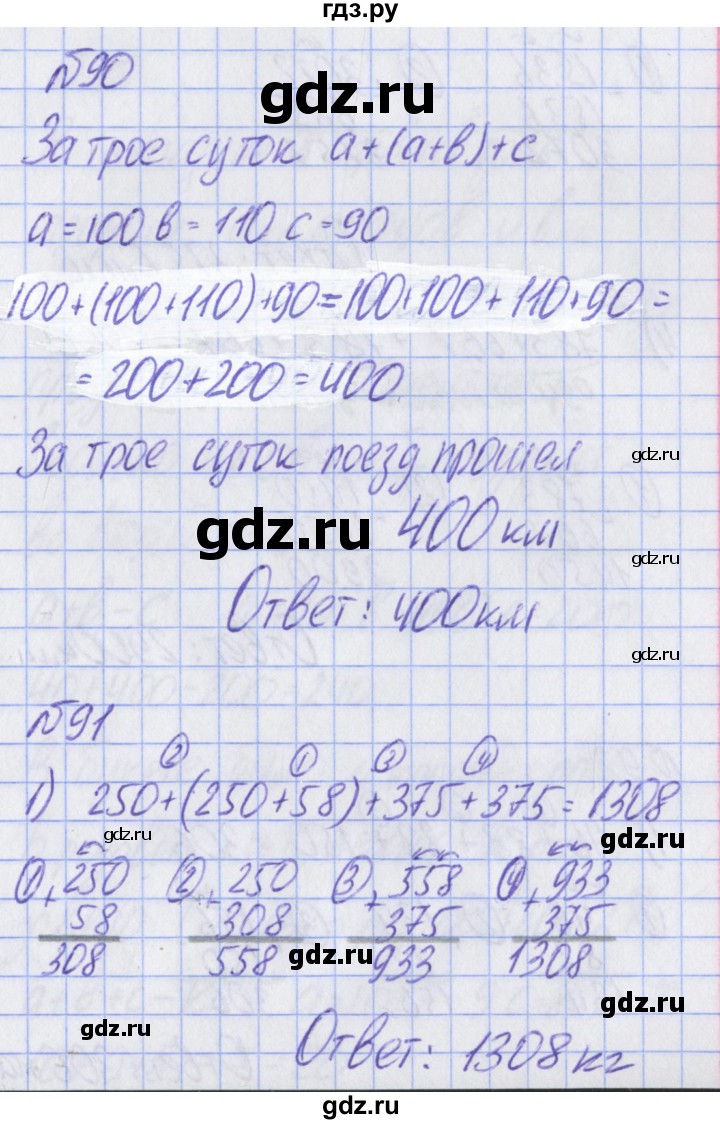 гдз.ру
№90
gdz.ru
За трое суток а+(а+в)+с
а=100 в=110 с=90
100+(100+110)+90=100+100+110+90=
=200+200=400
За трое суток поезд прошел
gdz.ru
gdz.ru
400 км
gdz.ru
Ответ: 400 км
gdz.ru
№91
② ① ③ ④
1) 250+(250+58)+375+375=1308
gdz.ru
gdz.ru
① +250 ② +250 ③ +558 ④ +933
58 308 375 375
308 558 933 1308
gdz.ru
gdz.ru
gdz.ru
Ответ: 1308 кг
gdz.ru
gdz.ru